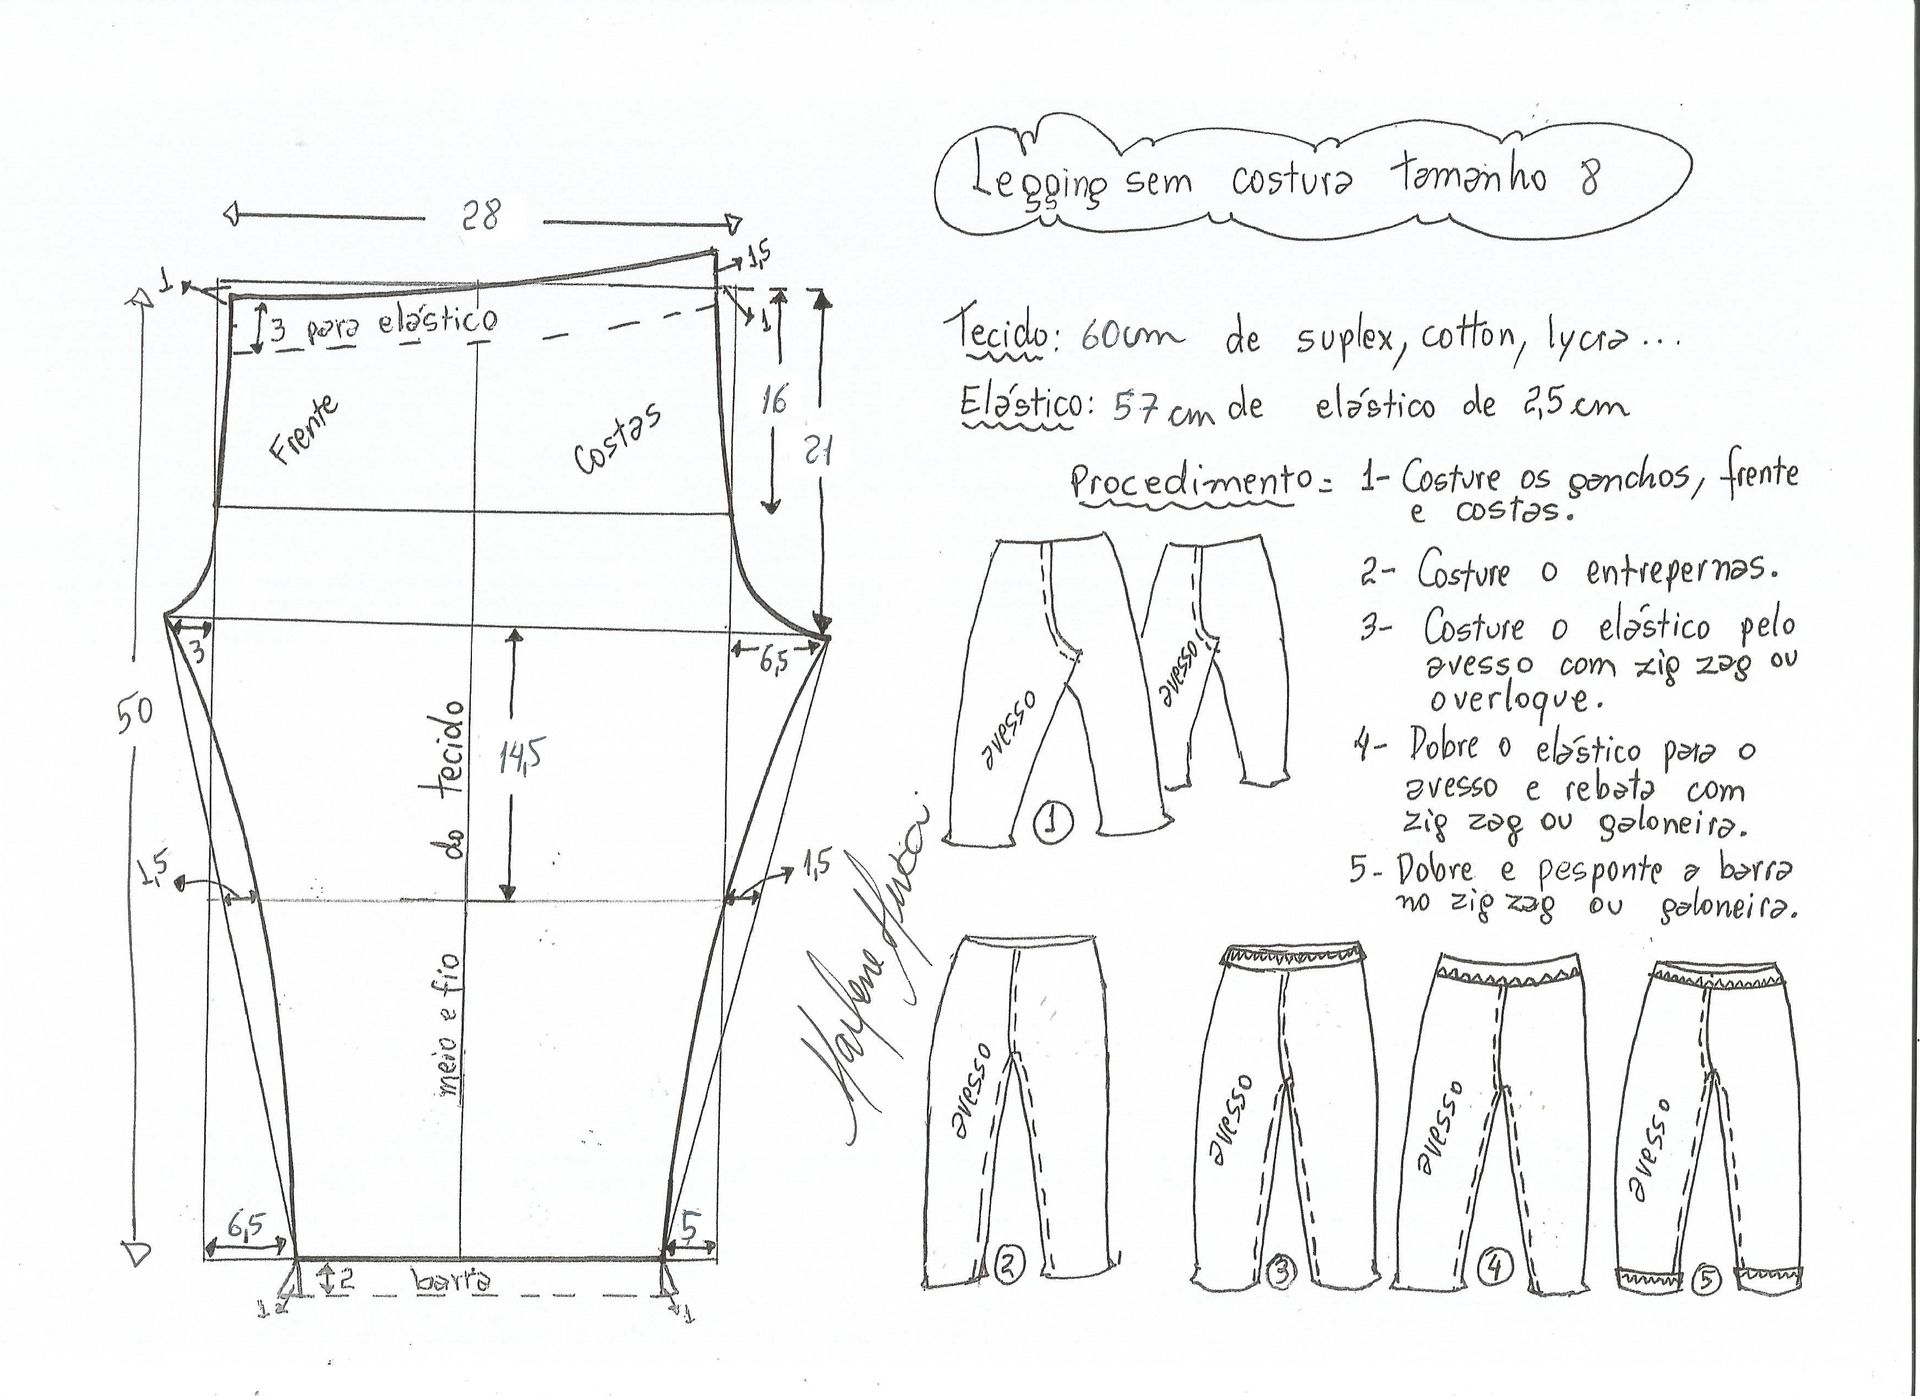 Legging sem costura tamanho 8
28
1
1,5
1
3 para elástico
Frente
Costas
16
21
3
6,5
50
14,5
meio e fio do tecido
1,5
1,5
6,5
5
2
barra
1
1
Tecido: 60cm de suplex, cotton, lycra...
Elástico: 57 cm de elástico de 2,5 cm
Procedimento = 1- Costure os ganchos, frente
e costas.
2- Costure o entrepernas.
3- Costure o elástico pelo
avesso com zig zag ou
overloque.
4- Dobre o elástico para o
avesso e rebata com
zig zag ou galoneira.
5- Dobre e pesponte a barra
no zig zag ou galoneira.
avesso
avesso
1
avesso
2
avesso
3
avesso
4
avesso
5